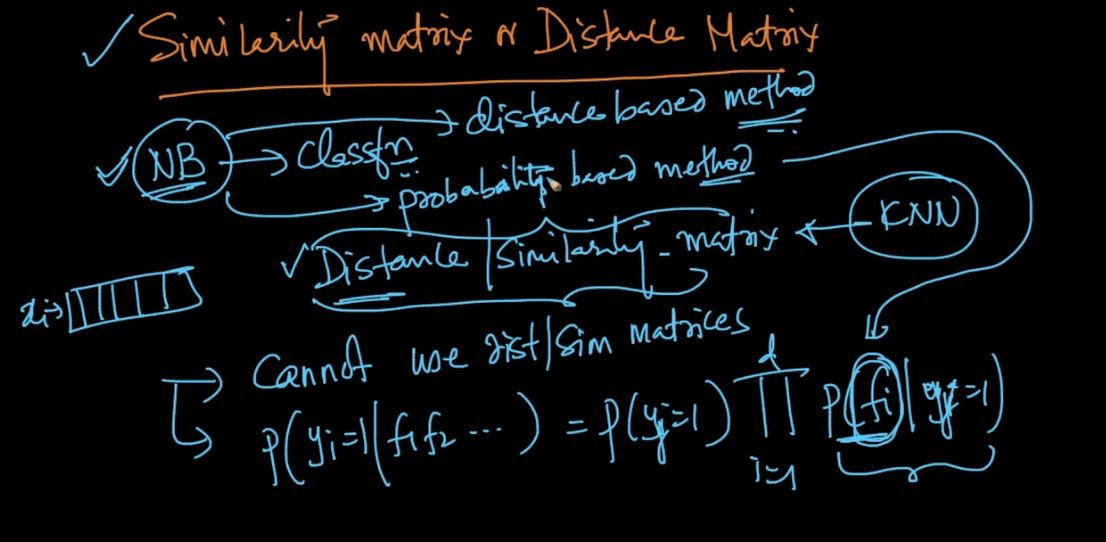 ✓ Similarity matrix or Distance Matrix
✓ NB → Classfn → distance based method
→ probability based method
✓ Distance | Similarity - matrix ← KNN
xi→
→ Cannot use dist/Sim matrices
P(yi=1|f1f2 ...) = P(yi=1) ∏ d i=1 P(fi|yi=1)